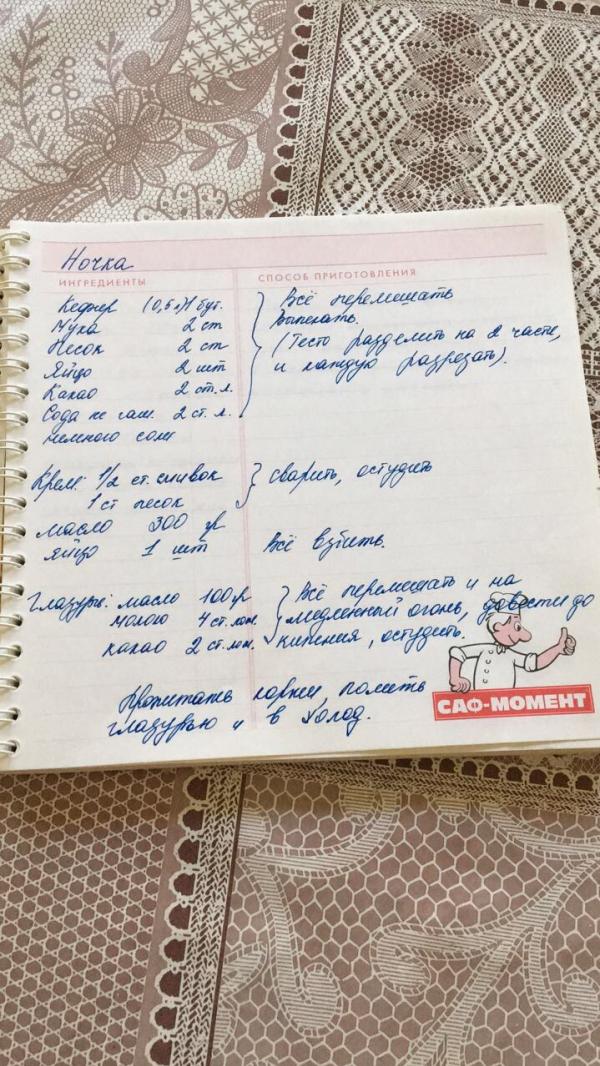 Ночка
ИНГРЕДИЕНТЫ
СПОСОБ ПРИГОТОВЛЕНИЯ
Кефир (0,5л) 1 бут.
Мука 2 ст
Песок 2 ст
Яйцо 2 шт
Какао 2 ст.л.
Сода не гаш. 2 ст.л.
немного соли
Всё перемешать
Выпекать.
(Тесто разделить на 2 части,
и каждую разрезать).
Крем: 1/2 ст. сливок
1 ст песок
сварить, остудить
масло 300 гр
яйцо 1 шт
Всё взбить.
Глазурь: масло 100 гр
молоко 4 ст. лож.
какао 2 ст. лож.
Всё перемешать и на
медленный огонь, довести до
кипения, остудить.
Пропитать коржи, полить
глазурью и в холод.
САФ-МОМЕНТ